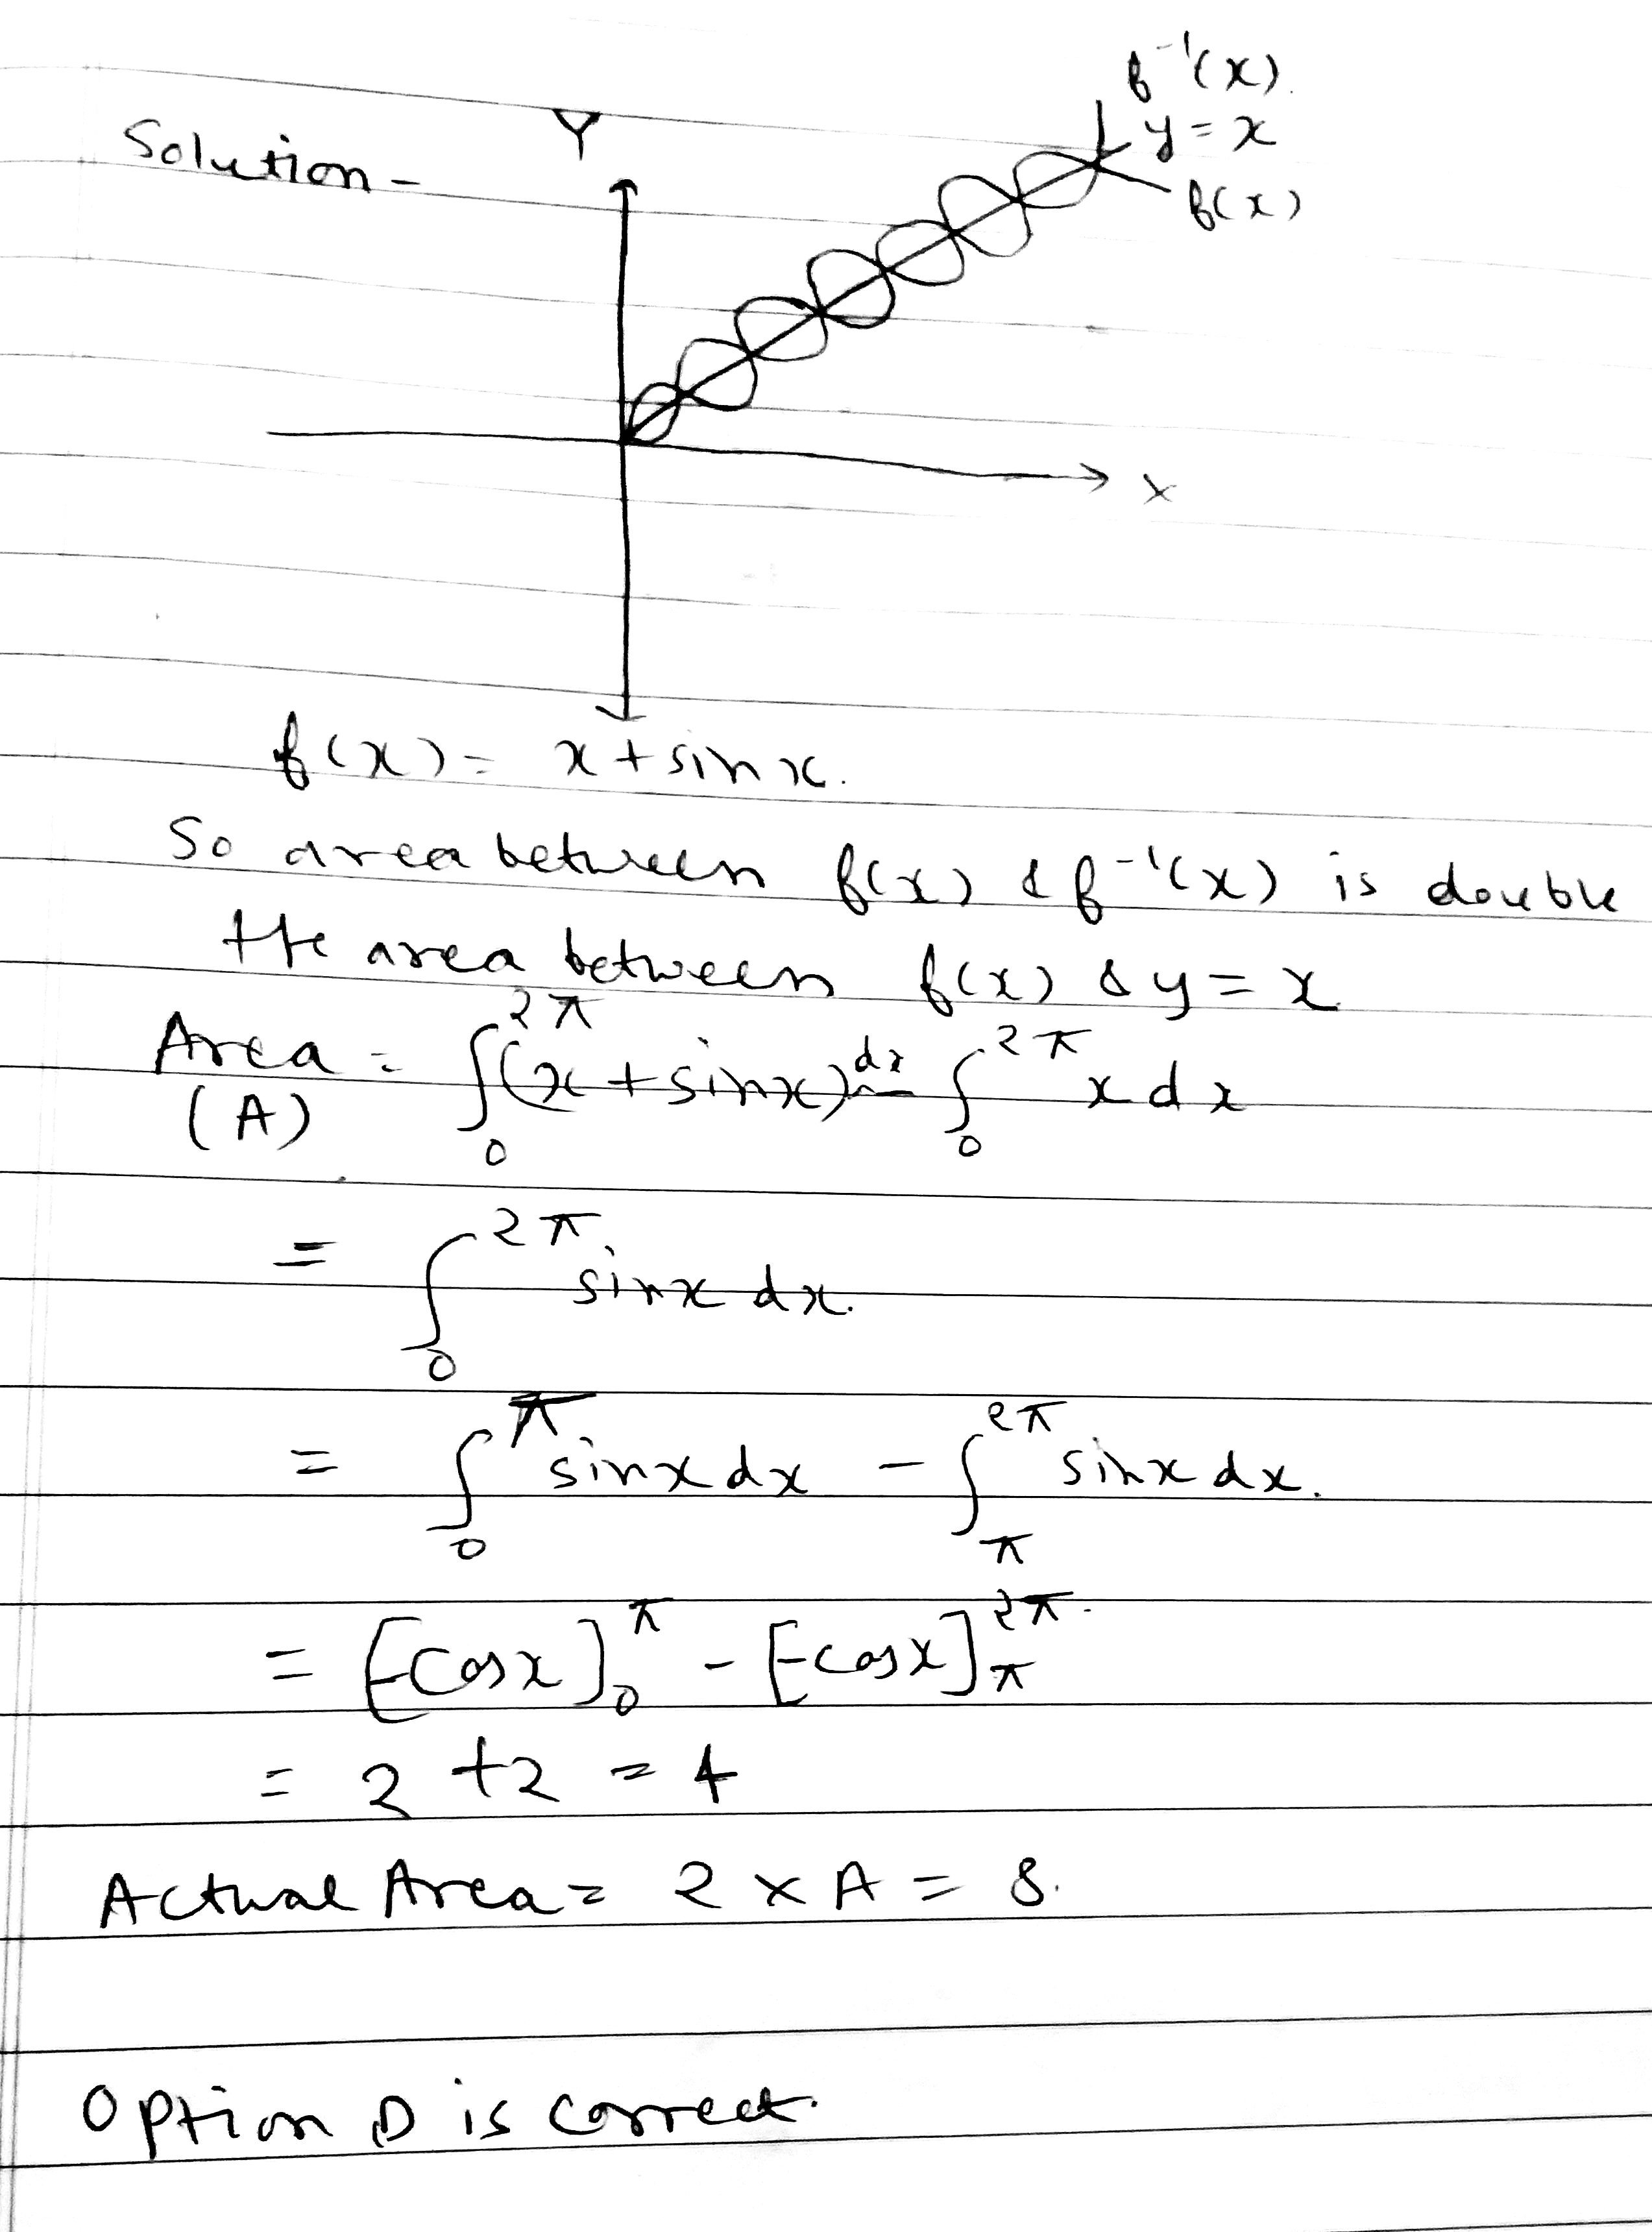 f⁻¹(x).
Solution -
Y
y = x
f(x)
X
f(x) = x + sin x.
So area between f(x) & f⁻¹(x) is double
the area between f(x) & y = x
Area (A) = ∫₀^2π (x + sinx) dx - ∫₀^2π x dx
= ∫₀^2π sinx dx.
= ∫₀^π sinx dx - ∫_π^2π sinx dx.
= [-cosx]₀^π - [-cosx]_π^2π.
= 2 + 2 = 4
Actual Area = 2 × A = 8.
Option D is correct.